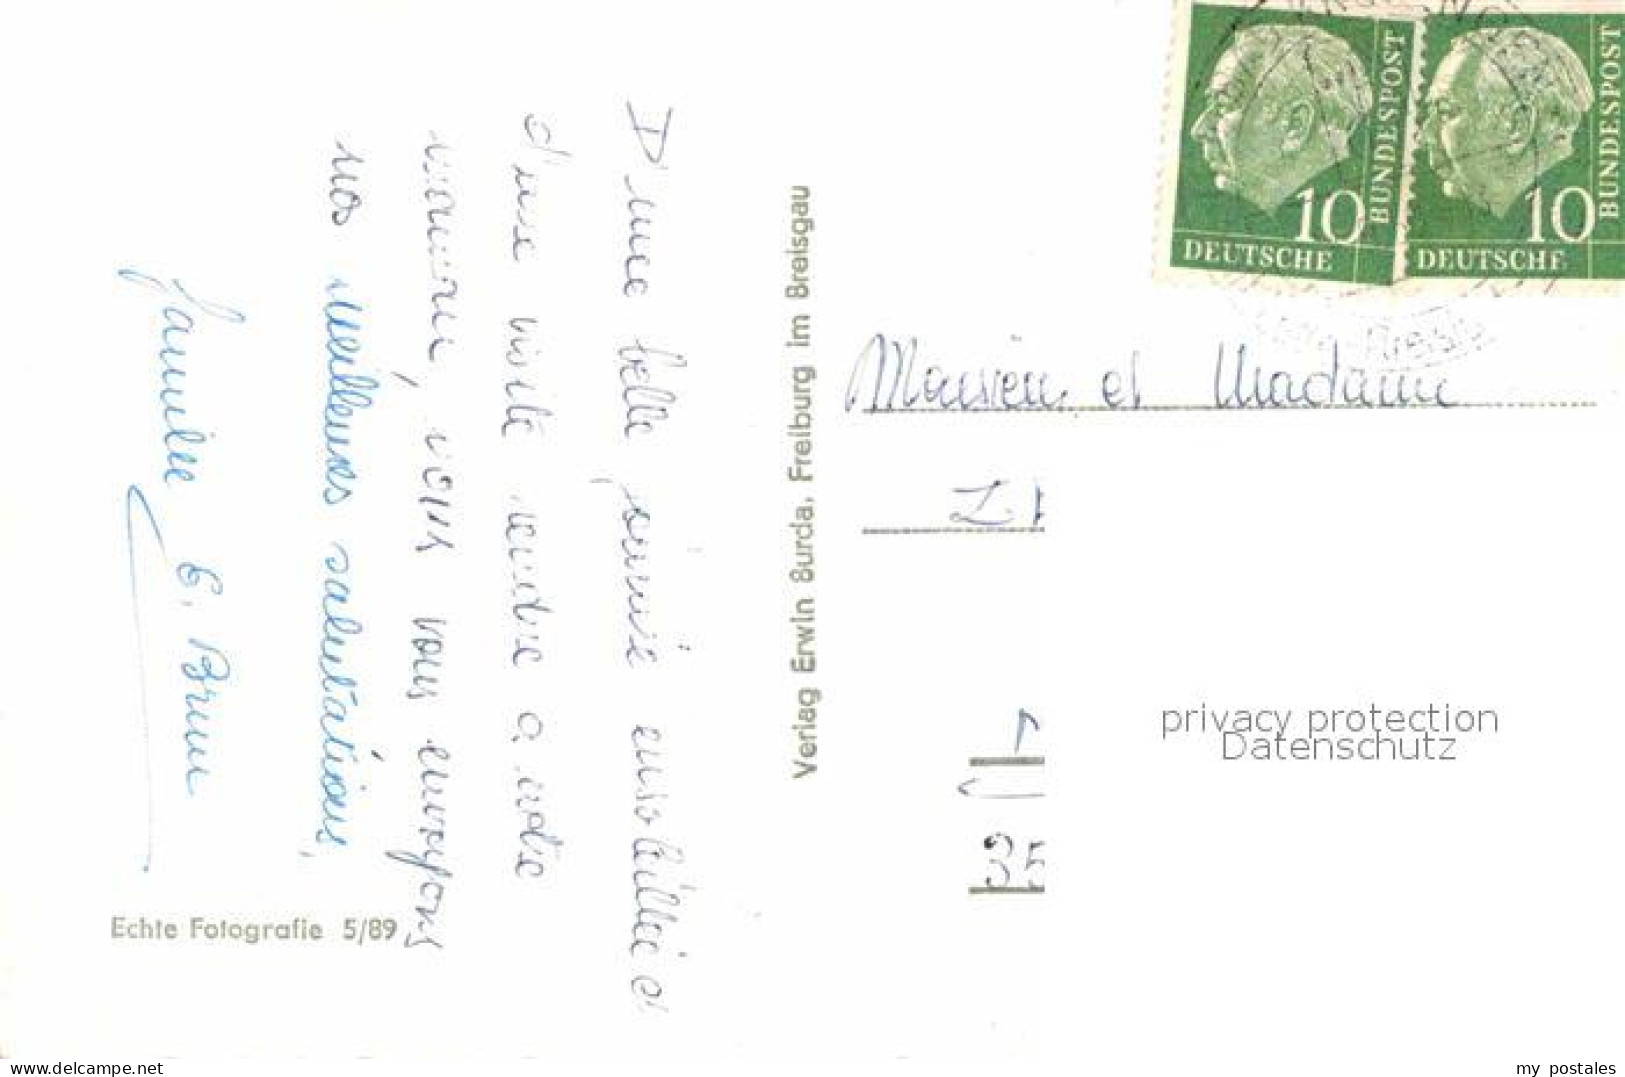 D'une belle journée ensoleillée et
d'une visite rendue à notre
maman, vous vous envoyons
nos meilleures salutations,
famille E. Brun
Echte Fotografie 5/89
Verlag Erwin Burda, Freiburg im Breisgau
DEUTSCHE BUNDESPOST 10
DEUTSCHE BUNDESPOST 10
Monsieur et Madame
privacy protection
Datenschutz
www.delcampe.net
my_postales